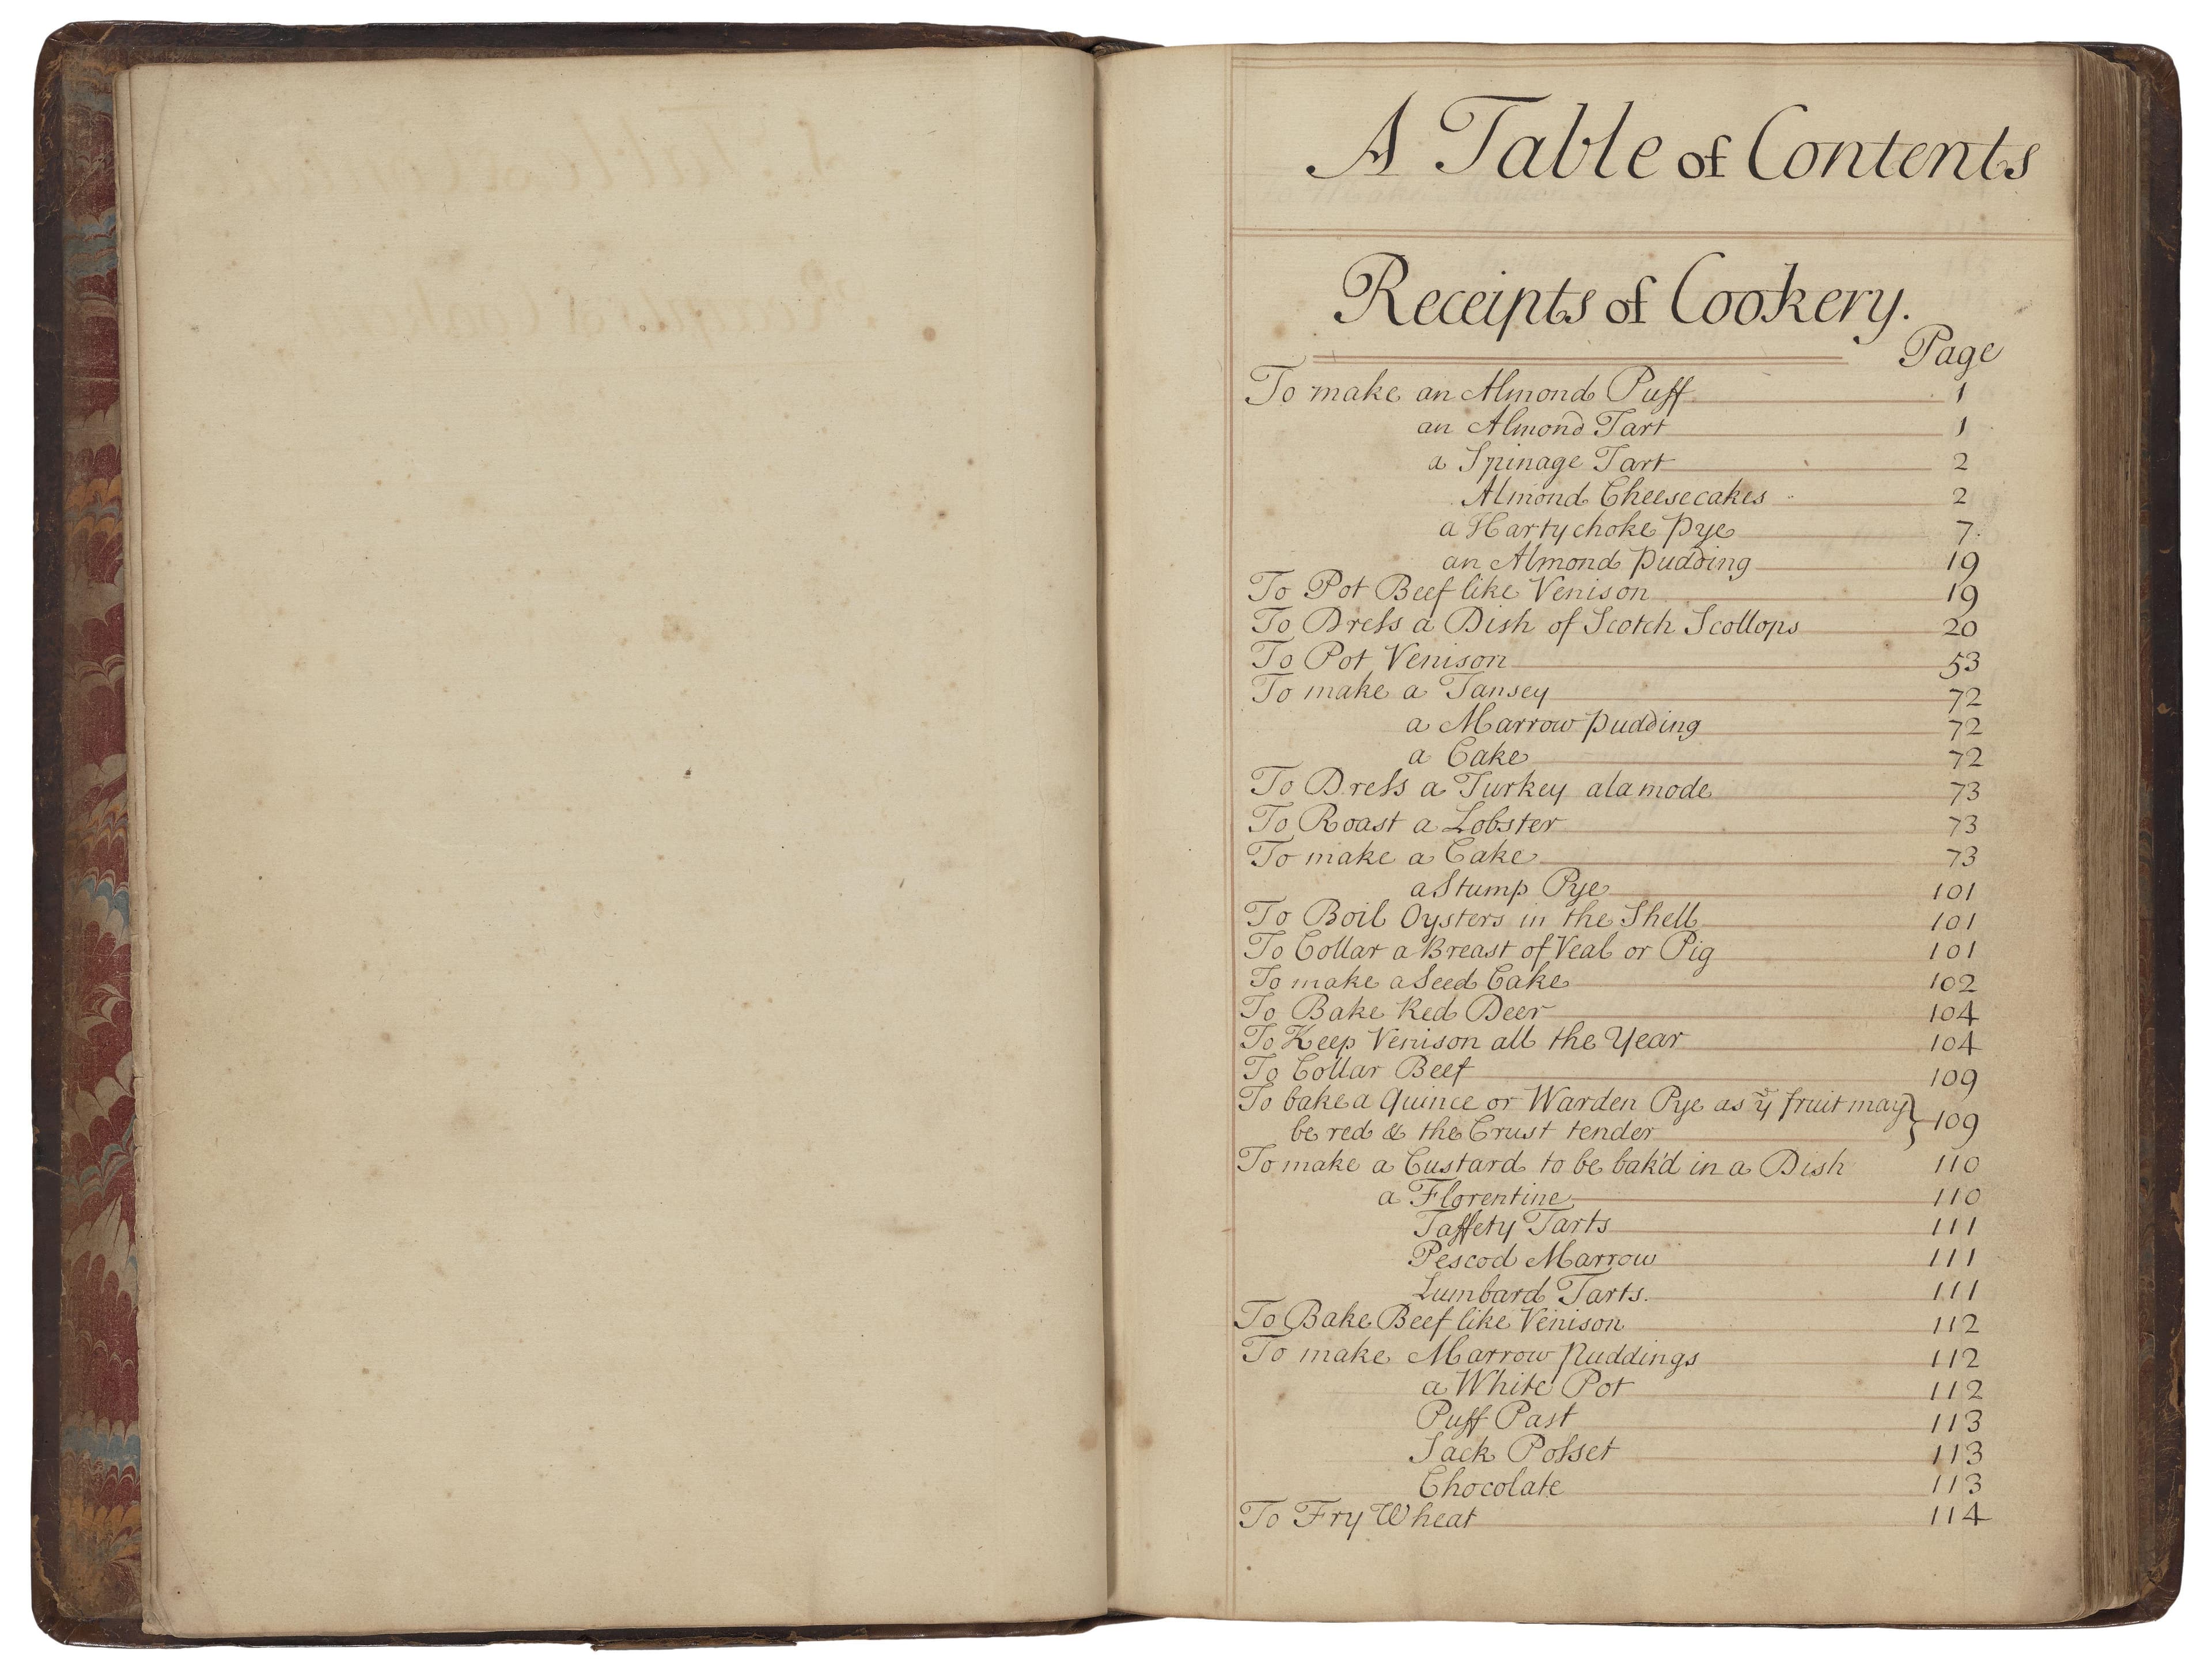 A Table of Contents
Receipts of Cookery.
Page
To make an Almond Puff 1
an Almond Tart 1
a Spinage Tart 2
Almond Cheesecakes 2
a Hartychoke Pye 7
an Almond Pudding 19
To Pot Beef like Venison 19
To Dreſs a Dish of Scotch Scollops 20
To Pot Venison 53
To make a Tansey 72
a Marrow Pudding 72
a Cake 72
To Dreſs a Turkey alamode 73
To Roast a Lobster 73
To make a Cake 73
a Stump Pye 101
To Boil Oysters in the Shell 101
To Collar a Breast of Veal or Pig 101
To make a Seed Cake 102
To Bake Red Deer 104
To Keep Venison all the Year 104
To Collar Beef 109
To bake a Quince or Warden Pye as yͤ fruit may
be red & the Crust tender } 109
To make a Custard to be bak'd in a Dish 110
a Florentine 110
Taffety Tarts 111
Pescod Marrow 111
Lumbard Tarts. 111
To Bake Beef like Venison 112
To make Marrow Puddings 112
a White Pot 112
Puff Past 113
Sack Poſset 113
Chocolate 113
To Fry Wheat 114